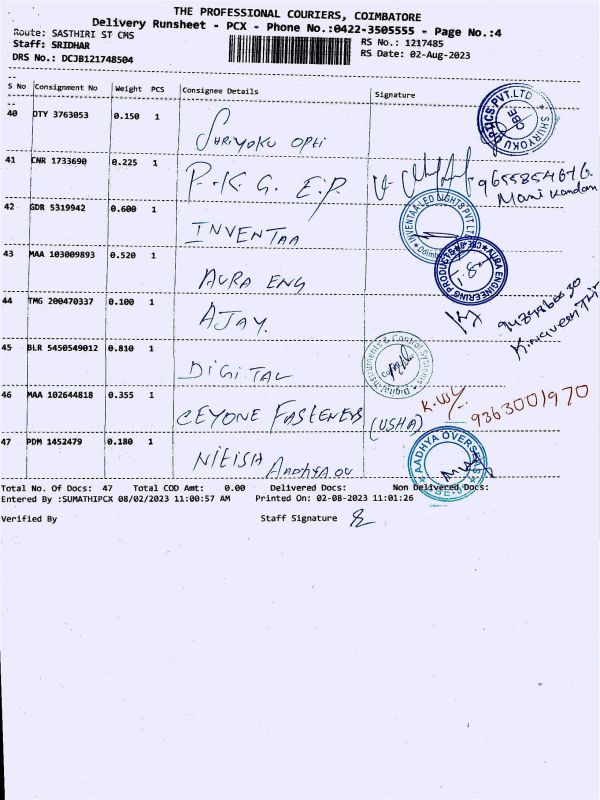 THE PROFESSIONAL COURIERS, COIMBATORE
Delivery Runsheet - PCX - Phone No.:0422-3505555 - Page No.:4
Route: SASTHIRI ST CMS
RS No.: 1217485
Staff: SRIDHAR
RS Date: 02-Aug-2023
DRS No.: DCJB121748504
S No Consignment No Weight PCS Consignee Details Signature
40 DTY 3763053 0.150 1 SHRIYOKU OPTI
OPTICS PVT.LTD SHRIYOKU CBE
41 CNR 1733690 0.225 1 P.K.G. E.P.
Mani Kandan
42 GDR 5319942 0.600 1 INVENTAA
INVENTAA LED LIGHTS PVT LTD
43 MAA 103009893 0.520 1 AURA ENG
AURA ENGINEERING PRODUCTS CBE
44 TMG 200470337 0.100 1 AJAY.
45 BLR 5450549012 0.810 1 DIGITAL
Digital Instruments & Control Systems
46 MAA 102644818 0.355 1 CEYONE FASTENERS (USHA) 9363001970
47 PDM 1452479 0.180 1 NITISH AADHYA OV
AADHYA OVERSEAS
Total No. Of Docs: 47 Total COD Amt: 0.00 Delivered Docs: Non Delivered Docs:
Entered By :SUMATHIPCX 08/02/2023 11:00:57 AM Printed On: 02-08-2023 11:01:26
Verified By Staff Signature